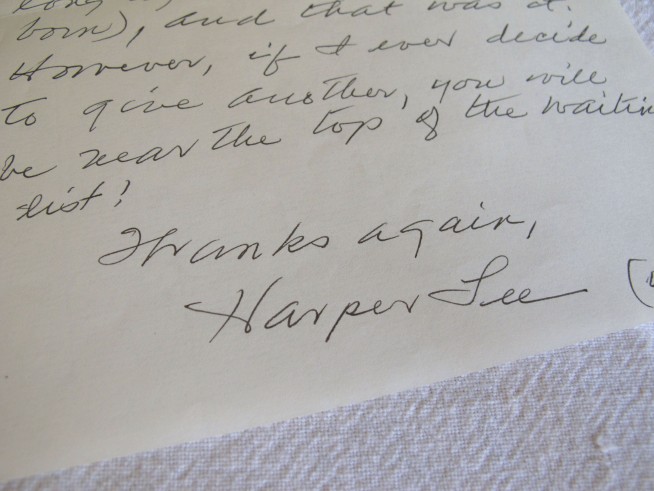 born), and that was it.
However, if I ever decide
to give another, you will
be near the top of the waitin
list!
Thanks again,
Harper Lee